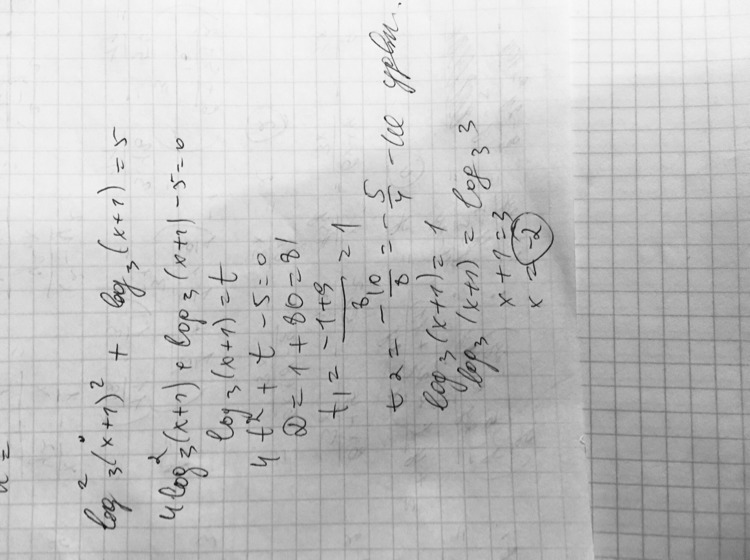 log²₃(x+1)² + log₃(x+1) = 5
4log²₃(x+1) + log₃(x+1) - 5 = 0
log₃(x+1) = t
4t² + t - 5 = 0
D = 1 + 80 = 81
t₁ = (-1+9)/8 = 1
t₂ = -10/8 = -5/4 - не
log₃(x+1) = 1
log₃(x+1) = log₃3
x + 1 = 3
x = -2